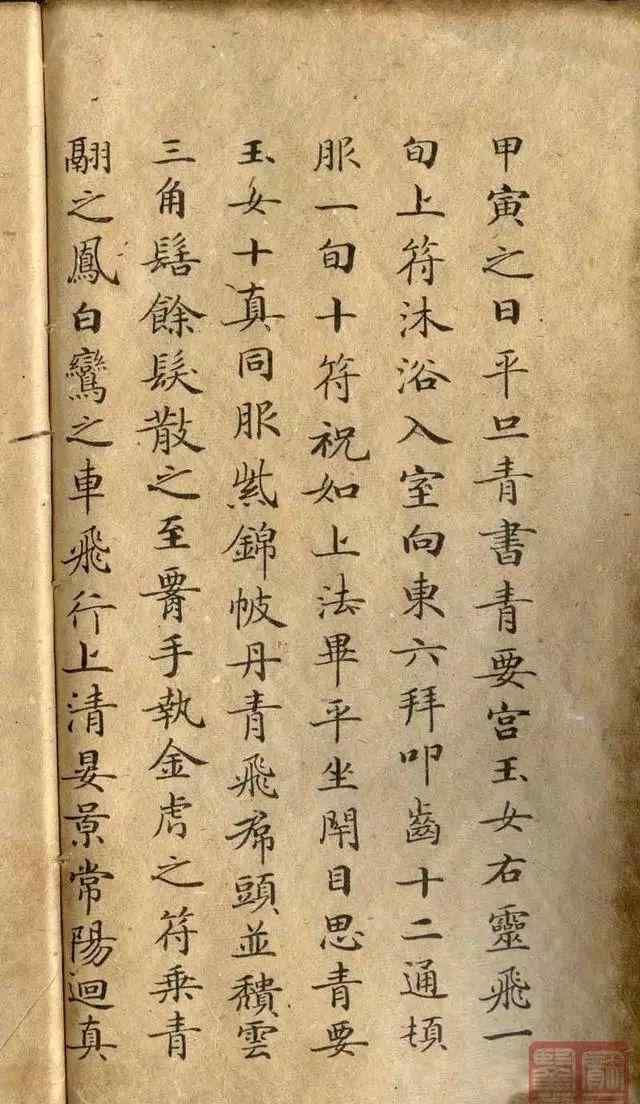 甲寅之日平旦青書青要宮玉女右靈飛一
旬上符沐浴入室向東六拜叩齒十二通頓
服一旬十符祝如上法畢平坐閇目思青要
玉女十真同服紫錦帔丹青飛帬頭並穨雲
三角髻餘髮散之至腰手執金虎之符乘青
翮之鳳白鸞之車飛行上清晏景常陽迴真